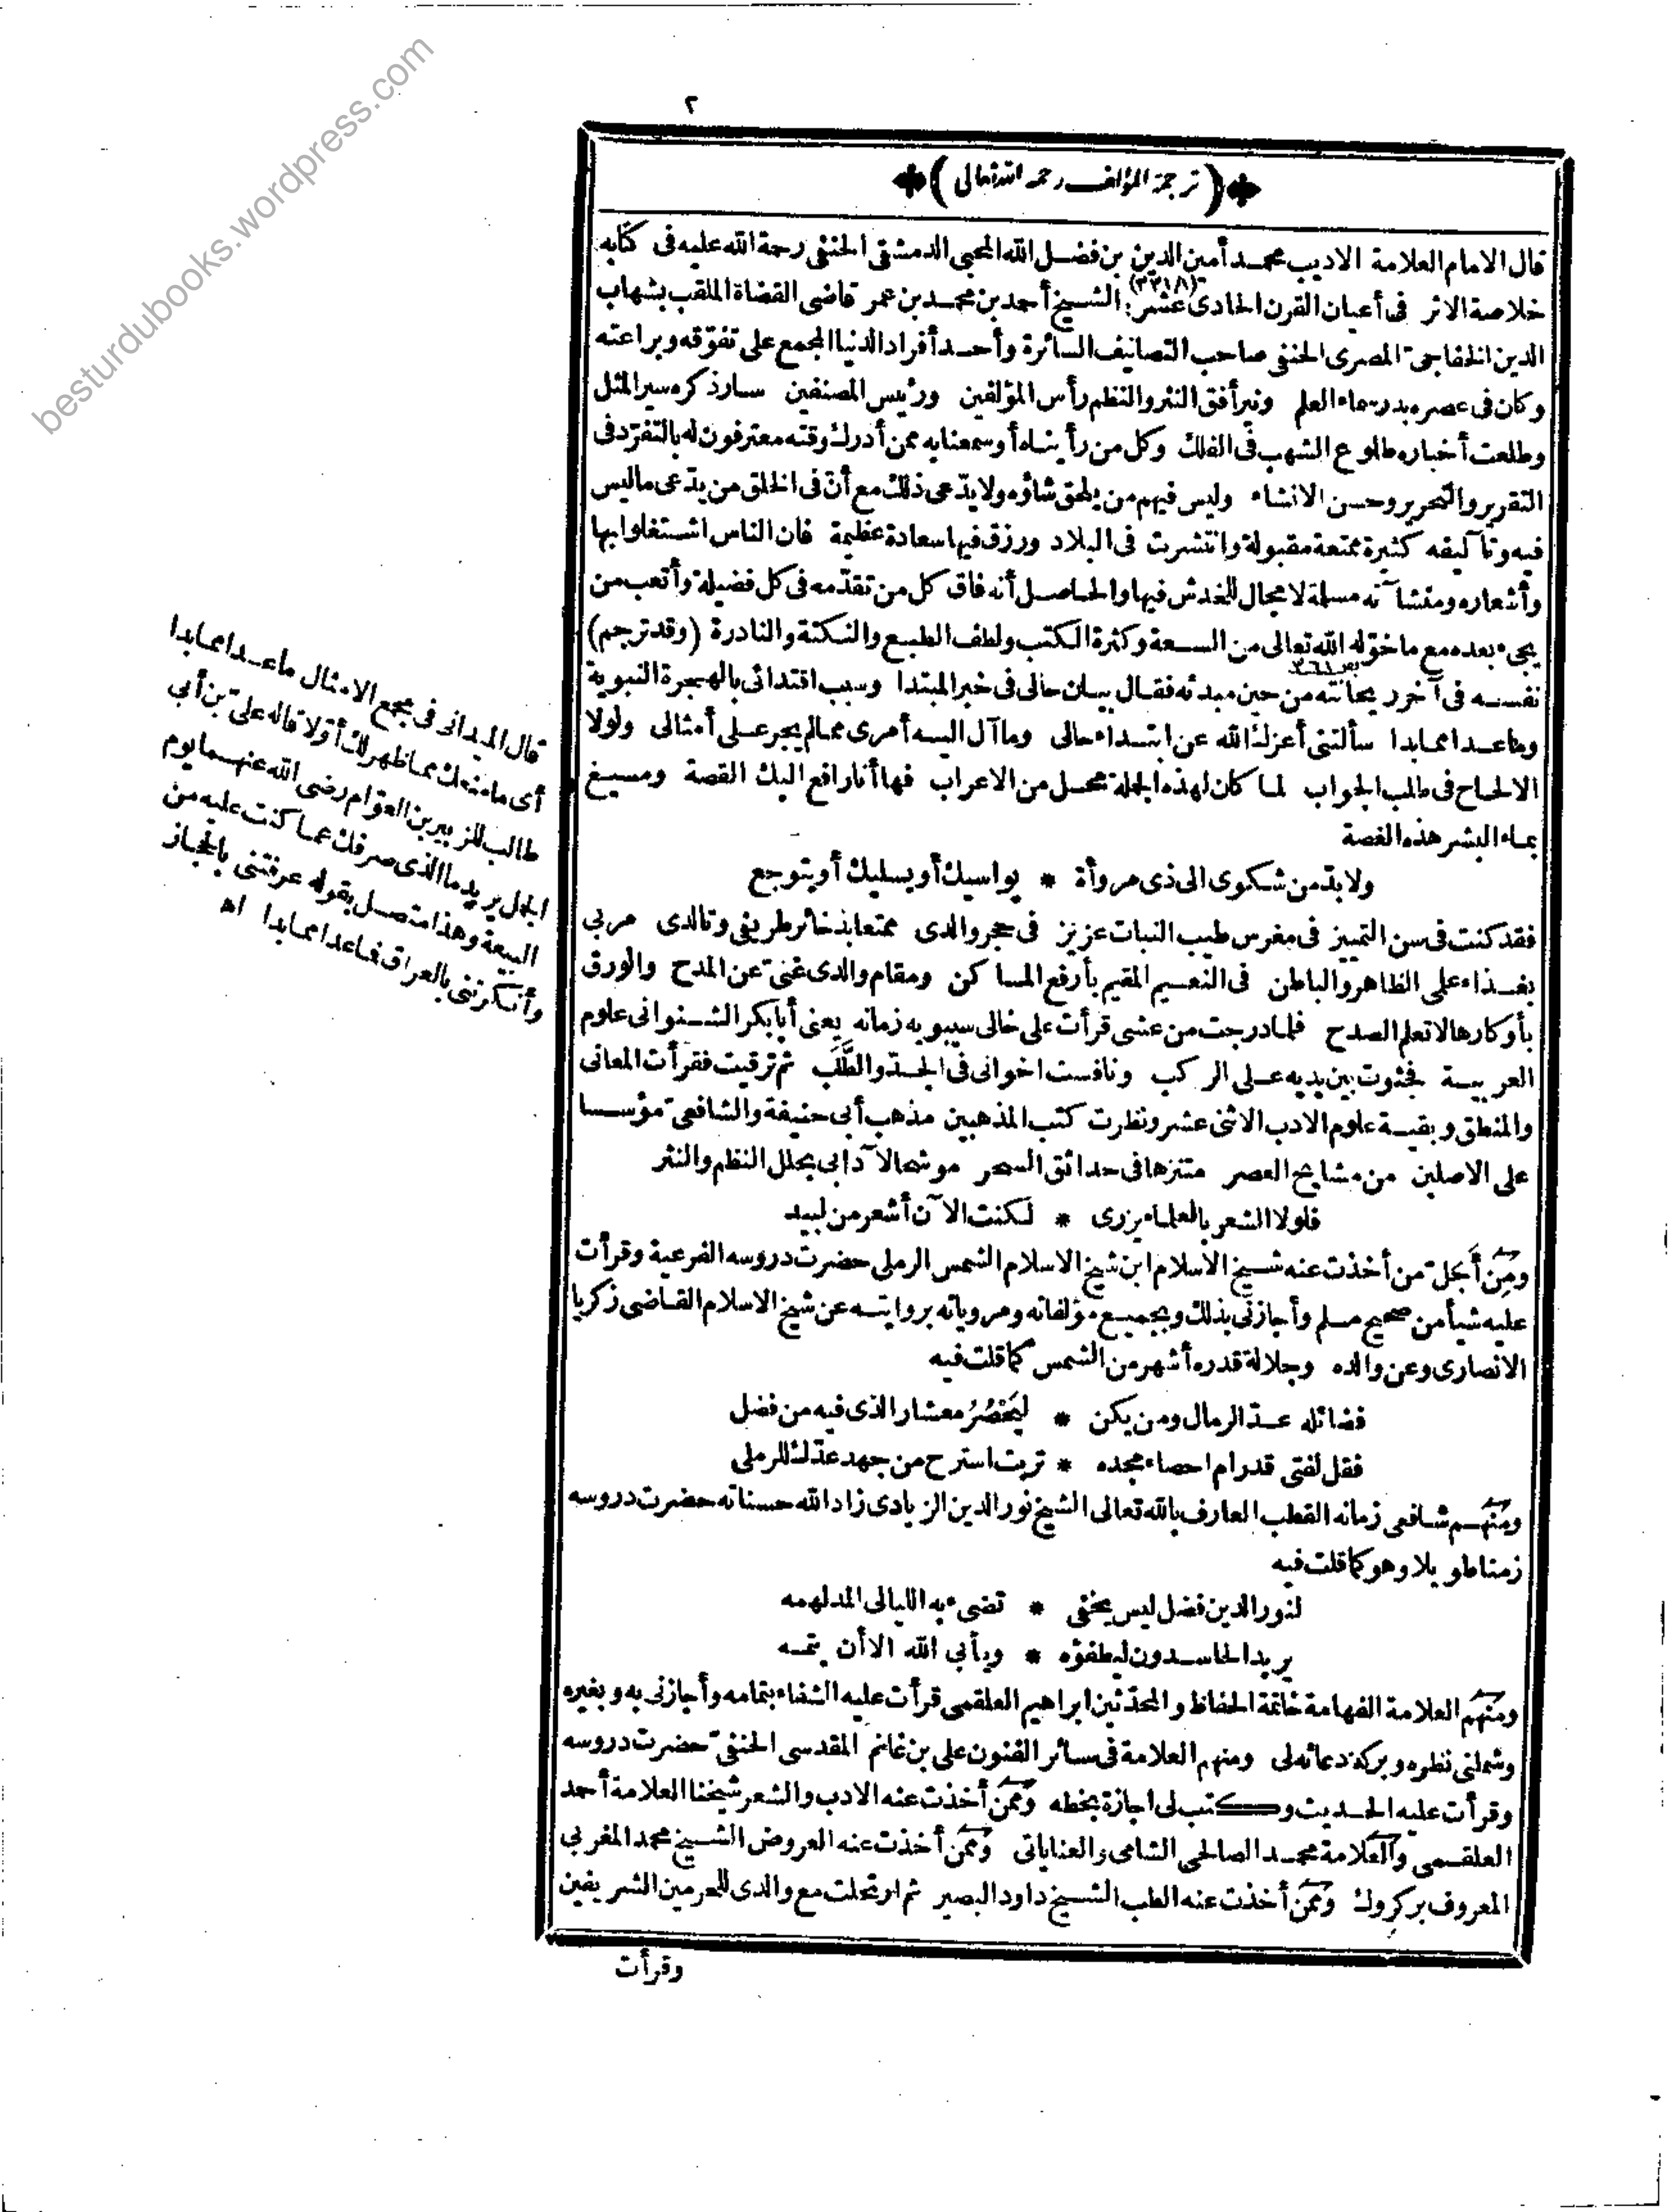 ٢
(ترجمة المؤلف رحمه الله تعالى)
قال الامام العلامة الاديب محمد أمين الدين بن فضل الله المحبي الدمشقي الحنفي رحمة الله عليه فى كتابه
خلاصة الاثر فى أعيان القرن الحادى عشر (١/٣٣١) الشيخ أحمد بن محمد بن عمر قاضى القضاة الملقب بشهاب
الدين الخفاجى المصرى الحنفى صاحب التصانيف السائرة وأحد أفراد الدنيا المجمع على تفوّقه وبراعته
وكان فى عصره بدر سماء العلم ونير أفق النثر والنظم رأس المؤلفين ورئيس المصنفين سار ذكره سير المثل
وطلعت أخباره طلوع الشهب فى الفلك وكل من رأيناه أو سمعنا به ممن أدرك وقته معترفون له بالتفرّد فى
التقرير والتحرير وحسن الانشاء وليس فيهم من يلحق شاؤه ولا يدّعى ذلك مع أنّ فى الخلق من يدّعى ماليس
فيه وتآليفه كثيرة ممتعة مقبولة وانتشرت فى البلاد ورزق فيها سعادة عظيمة فان الناس اشتغلوا بها
وأشعاره ومنشآته مسلمة لا مجال للخدش فيها والحاصل أنه فاق كل من تقدّمه فى كل فضيلة وأتعب من
يجىء بعده مع ماخوّله الله تعالى من السعة وكثرة الكتب ولطف الطبع والنكتة والنادرة (وقد ترجم)
نفسه فى آخر ريحانته من حين مبدئه فقال بيان حالى فى خبر المبتدا وسبب اقتدائى بالهجرة النبوية
وماعدا ممابدا سألتنى أعزك الله عن ابتداء حالى وما آل اليه أمرى ممالم يجر على أمثالى ولولا
الالحاح فى طلب الجواب لما كان لهذه الجملة محل من الاعراب فها أنا رافع اليك القصة ومسيغ
بماء البشر هذه الغصة
ولا بدّ من شكوى الى ذى مروأة * يواسيك أو يسليك أو يتوجع
فقد كنت فى سن التمييز فى مغرس طيب النبات عزيز فى حجر والدى ممتعا بذخائر طريفى وتالدى مربى
بغذاء على الظاهر والباطن فى النعيم المقيم بأرفع المساكن ومقام والدى غنىّ عن المدح والورق
بأوكارها لا تعلم الصدح فلما درجت من عشى قرأت على خالى سيبويه زمانه يعنى أبا بكر الشنوانى علوم
العربية فجثوت بين يديه على الركب ونافست اخوانى فى الجدّ والطَّلَب ثم ترقيت فقرأت المعانى
والمنطق وبقية علوم الادب الاثنى عشر ونظرت كتب المذهبين مذهب أبى حنيفة والشافعى مؤسسا
على الاصلين من مشايخ العصر متنزها فى حدائق السحر موشحا لآدابى بحلل النظم والنثر
فلولا الشعر بالعلماء يزرى * لكنت الآن أشعر من لبيد
ومن أجلّ من أخذت عنه شيخ الاسلام ابن شيخ الاسلام الشمس الرملى حضرت دروسه الفرعية وقرأت
عليه شيأ من صحيح مسلم وأجازنى بذلك وبجميع مؤلفاته ومروياته بروايته عن شيخ الاسلام القاضى زكريا
الانصارى وعن والده وجلالة قدره أشهر من الشمس كما قلت فيه
فضائله عدّ الرمال ومن يكن * ليَحْصُرُ معشار الذى فيه من فضل
فقل لفتى قد رام احصاء مجده * تربت استرح من جهد عدّك للرملى
ومنهم شافعى زمانه القطب العارف بالله تعالى الشيخ نور الدين الزيادى زاد الله حسناته حضرت دروسه
زمنا طويلا وهو كما قلت فيه
لنور الدين فضل ليس يخفى * تضىء به الليالى المدلهمه
يريد الحاسدون ليطفؤه * ويأبى الله الا أن يتمه
ومنهم العلامة الفهامة خاتمة الحفاظ والمحدّثين ابراهيم العلقمى قرأت عليه الشفاء بتمامه وأجازنى به وبغيره
وشملنى نظره وبركة دعائه لى ومنهم العلامة فى سائر الفنون على بن غانم المقدسى الحنفى حضرت دروسه
وقرأت عليه الحديث وكتب لى اجازة بخطه وممن أخذت عنه الادب والشعر شيخنا العلامة أحمد
العلقمى والعلامة محمد الصالحى الشامى والعناياتى وممن أخذت عنه العروض الشيخ محمد المغربى
المعروف بركروك وممن أخذت عنه الطب الشيخ داود البصير ثم ارتحلت مع والدى للحرمين الشريفين
وقرأت
قال الميدانى فى مجمع الامثال ماعدا ممابدا
أى مامنعك مما ظهر لك أوّلا قاله علىّ بن أبى
طالب للزبير بن العوّام رضى الله عنهما يوم
الجمل يريد ما الذى صرفك عما كنت عليه من
البيعة وهذا متصل بقوله عرفتنى بالحجاز
وأنكرتنى بالعراق فماعدا ممابدا اه
besturdubooks.wordpress.com